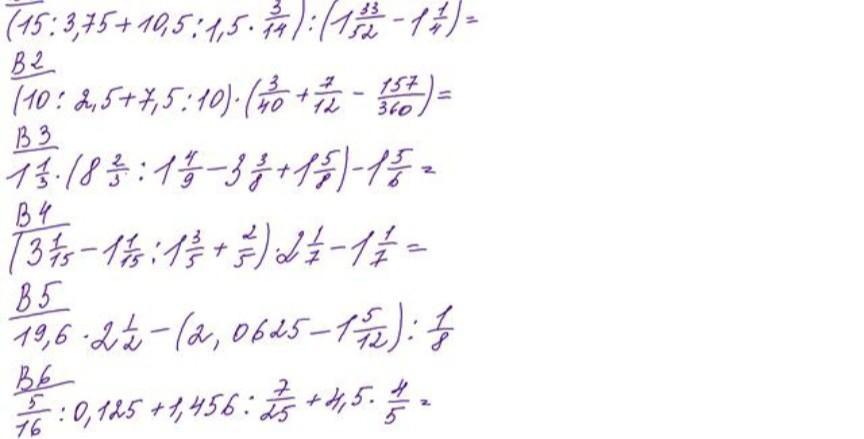 (15 : 3,75 + 10,5 : 1,5 · 3/14) : (1 33/52 - 1 1/4) =
В 2
(10 : 2,5 + 7,5 : 10) · (3/40 + 7/12 - 157/360) =
В 3
1 1/3 · (8 2/3 : 1 4/9 - 3 3/8 + 1 5/8) - 1 5/6 =
В 4
(3 1/15 - 1 1/15 : 1 3/5 + 2/5) · 2 1/7 - 1 1/7 =
В 5
19,6 · 2 1/2 - (2,0625 - 1 5/12) : 1/8
В 6
5/16 : 0,125 + 1,456 : 7/25 + 4,5 · 4/5 =